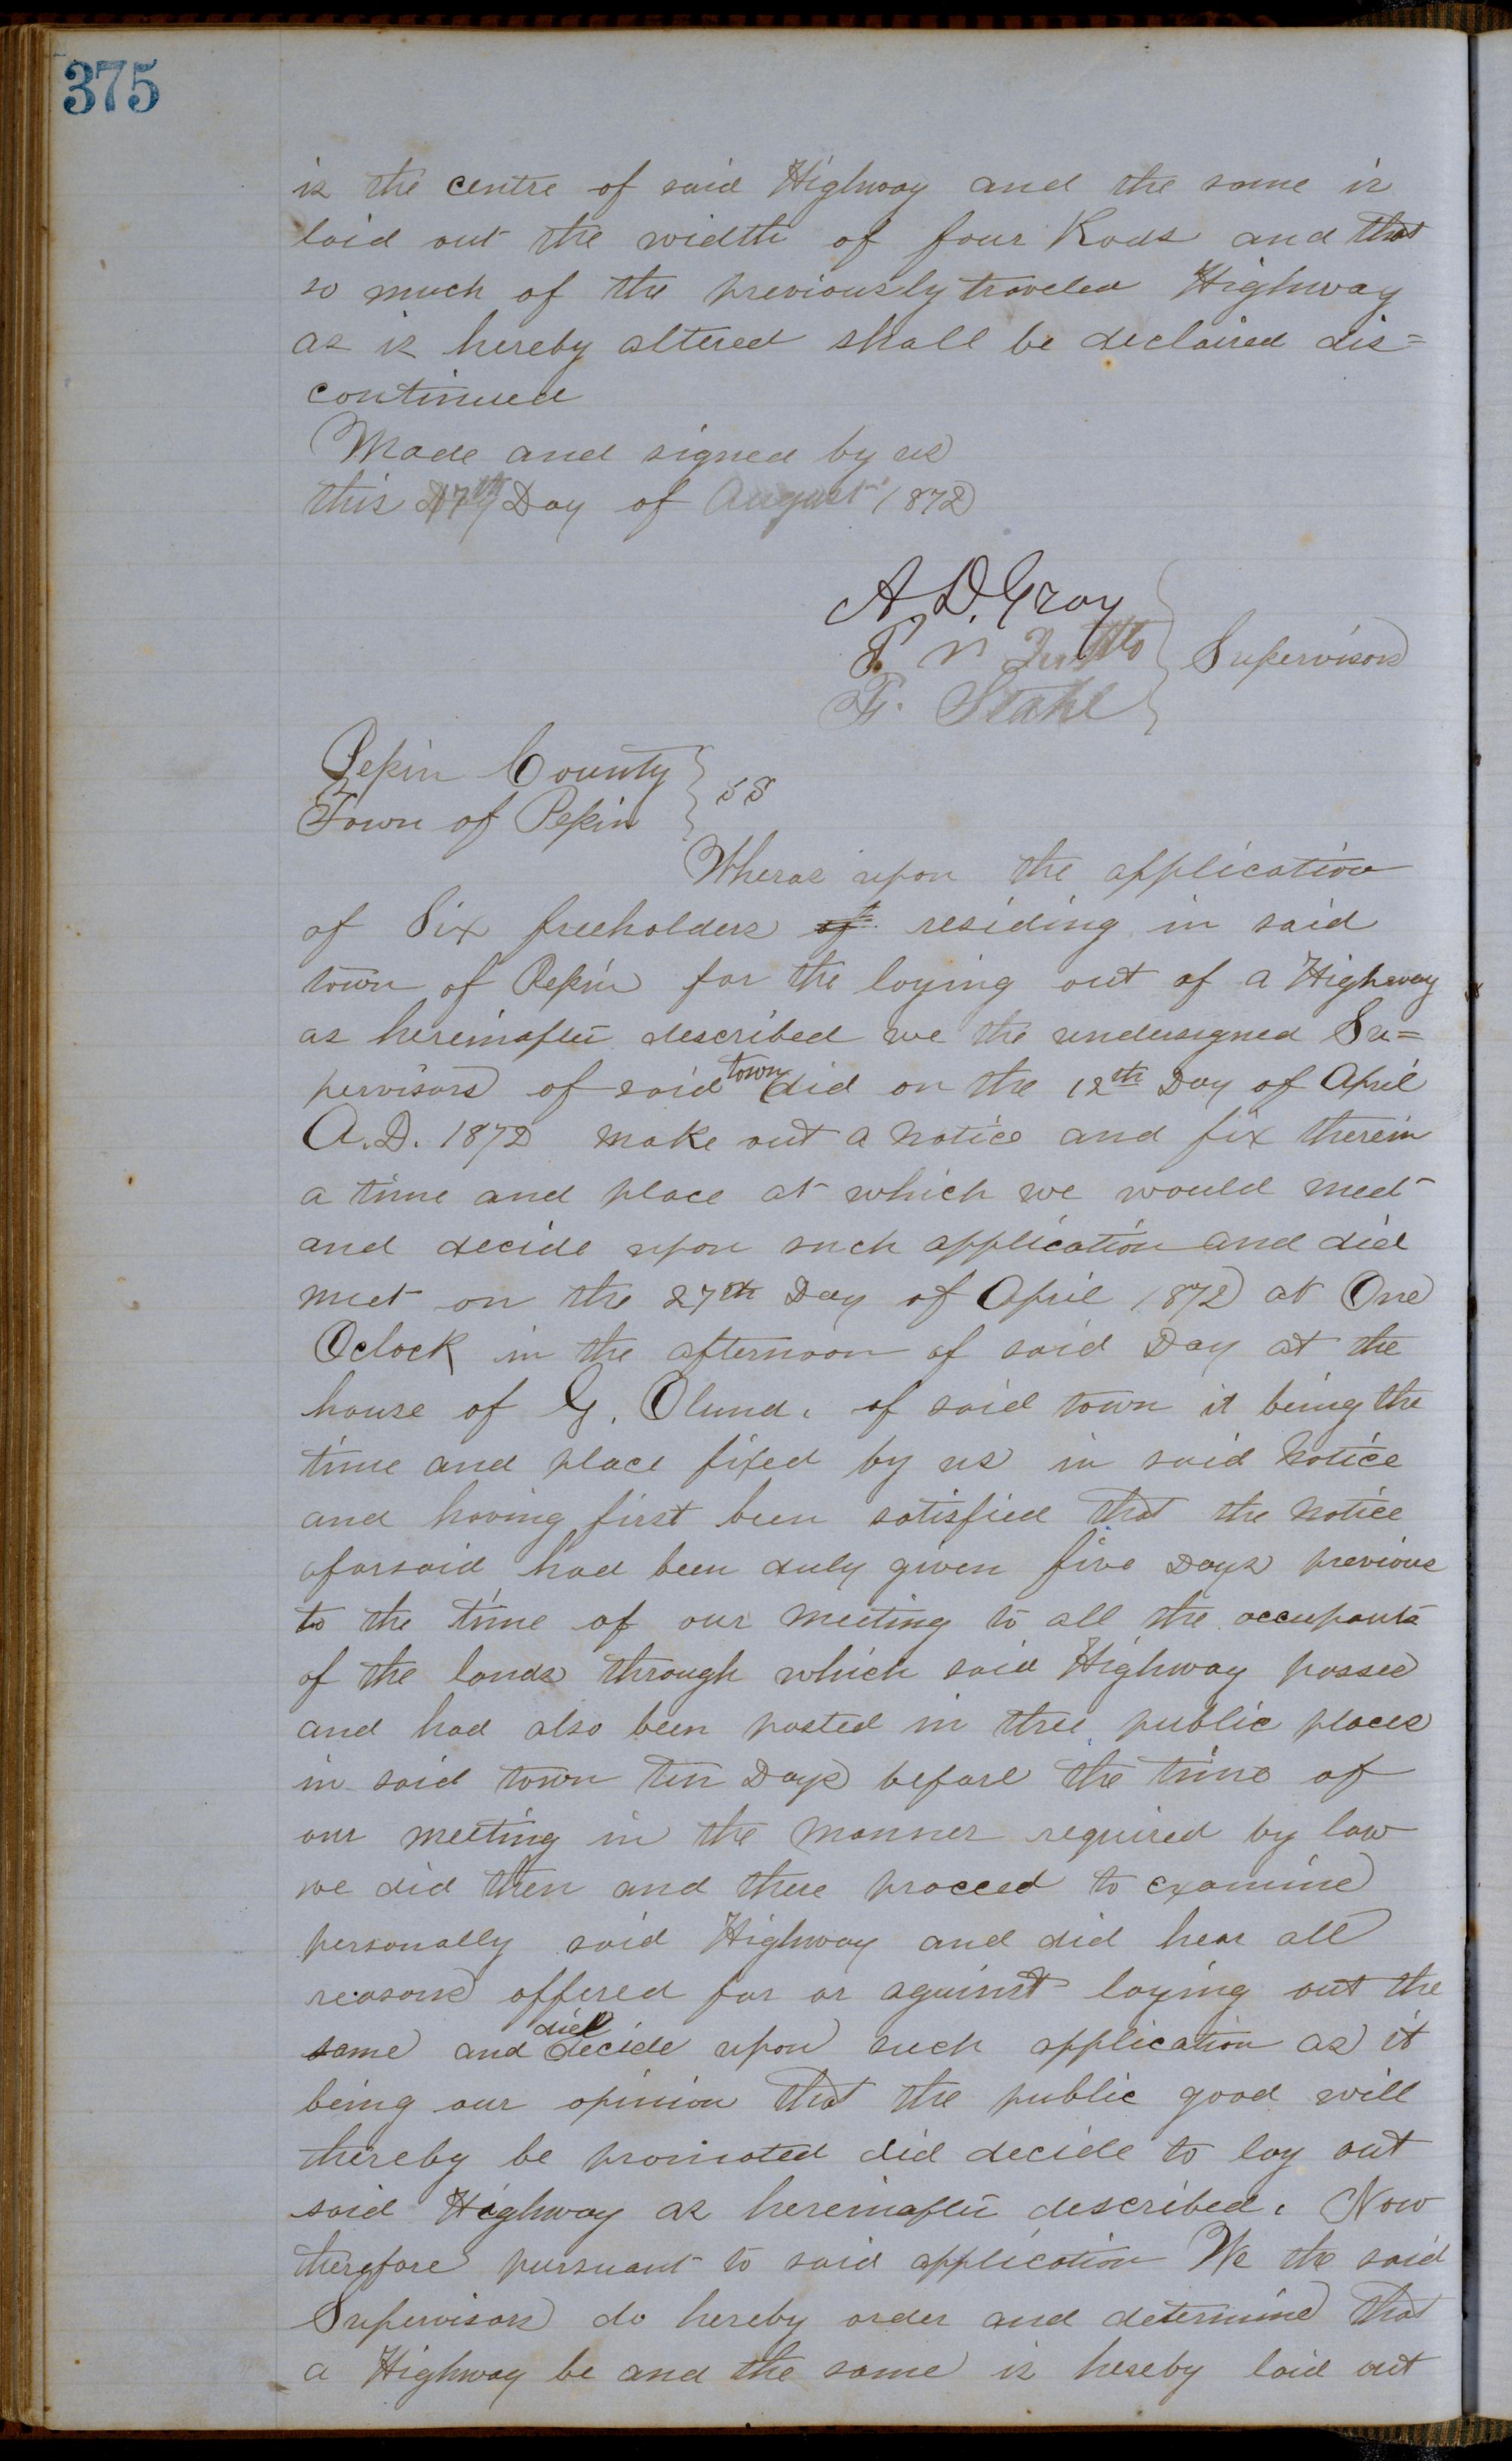 375
is the centre of said Highway and the same is
laid out the width of four Rods and that
so much of the previously traveled Highway
as is hereby altered shall be declaired dis=
continued
Made and signed by us
this 17th Day of August 1872
A. D. Gray
F. Stahl
Supervisors
Pekin County
Town of Pepin
SS
Wheras upon the application
of Six freeholders of residing in said
town of Pepin for the laying out of a Highway
as hereinafter described we the undersigned Su=
pervisors of said town did on the 12th Day of April
A.D. 1872 make out a notice and fix therein
a time and place at which we would meet
and decide upon such application and did
meet on the 27th Day of April 1872 at One
Oclock in the afternoon of said Day at the
house of G. Olund. of said town it being the
time and place fixed by us in said Notice
and having first been satisfied that the Notice
aforsaid had been duly given five Days previous
to the time of our meeting to all the occupants
of the lands through which said Highway passed
and had also been posted in three public places
in said town ten Days before the time of
our meeting in the manner required by law
we did then and there proceed to examine
personally said Highway and did hear all
reasons offered for or against laying out the
same and did decide upon such application as it
being our opinion that the public good will
thereby be promoted did decide to lay out
said Highway as hereinafter described. Now
therefore pursuant to said application We the said
Supervisors do hereby order and determine that
a Highway be and the same is hereby laid out